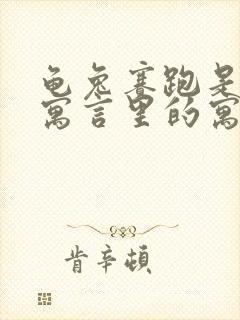 龟兔赛跑是
寓言里的寓
肯辛顿